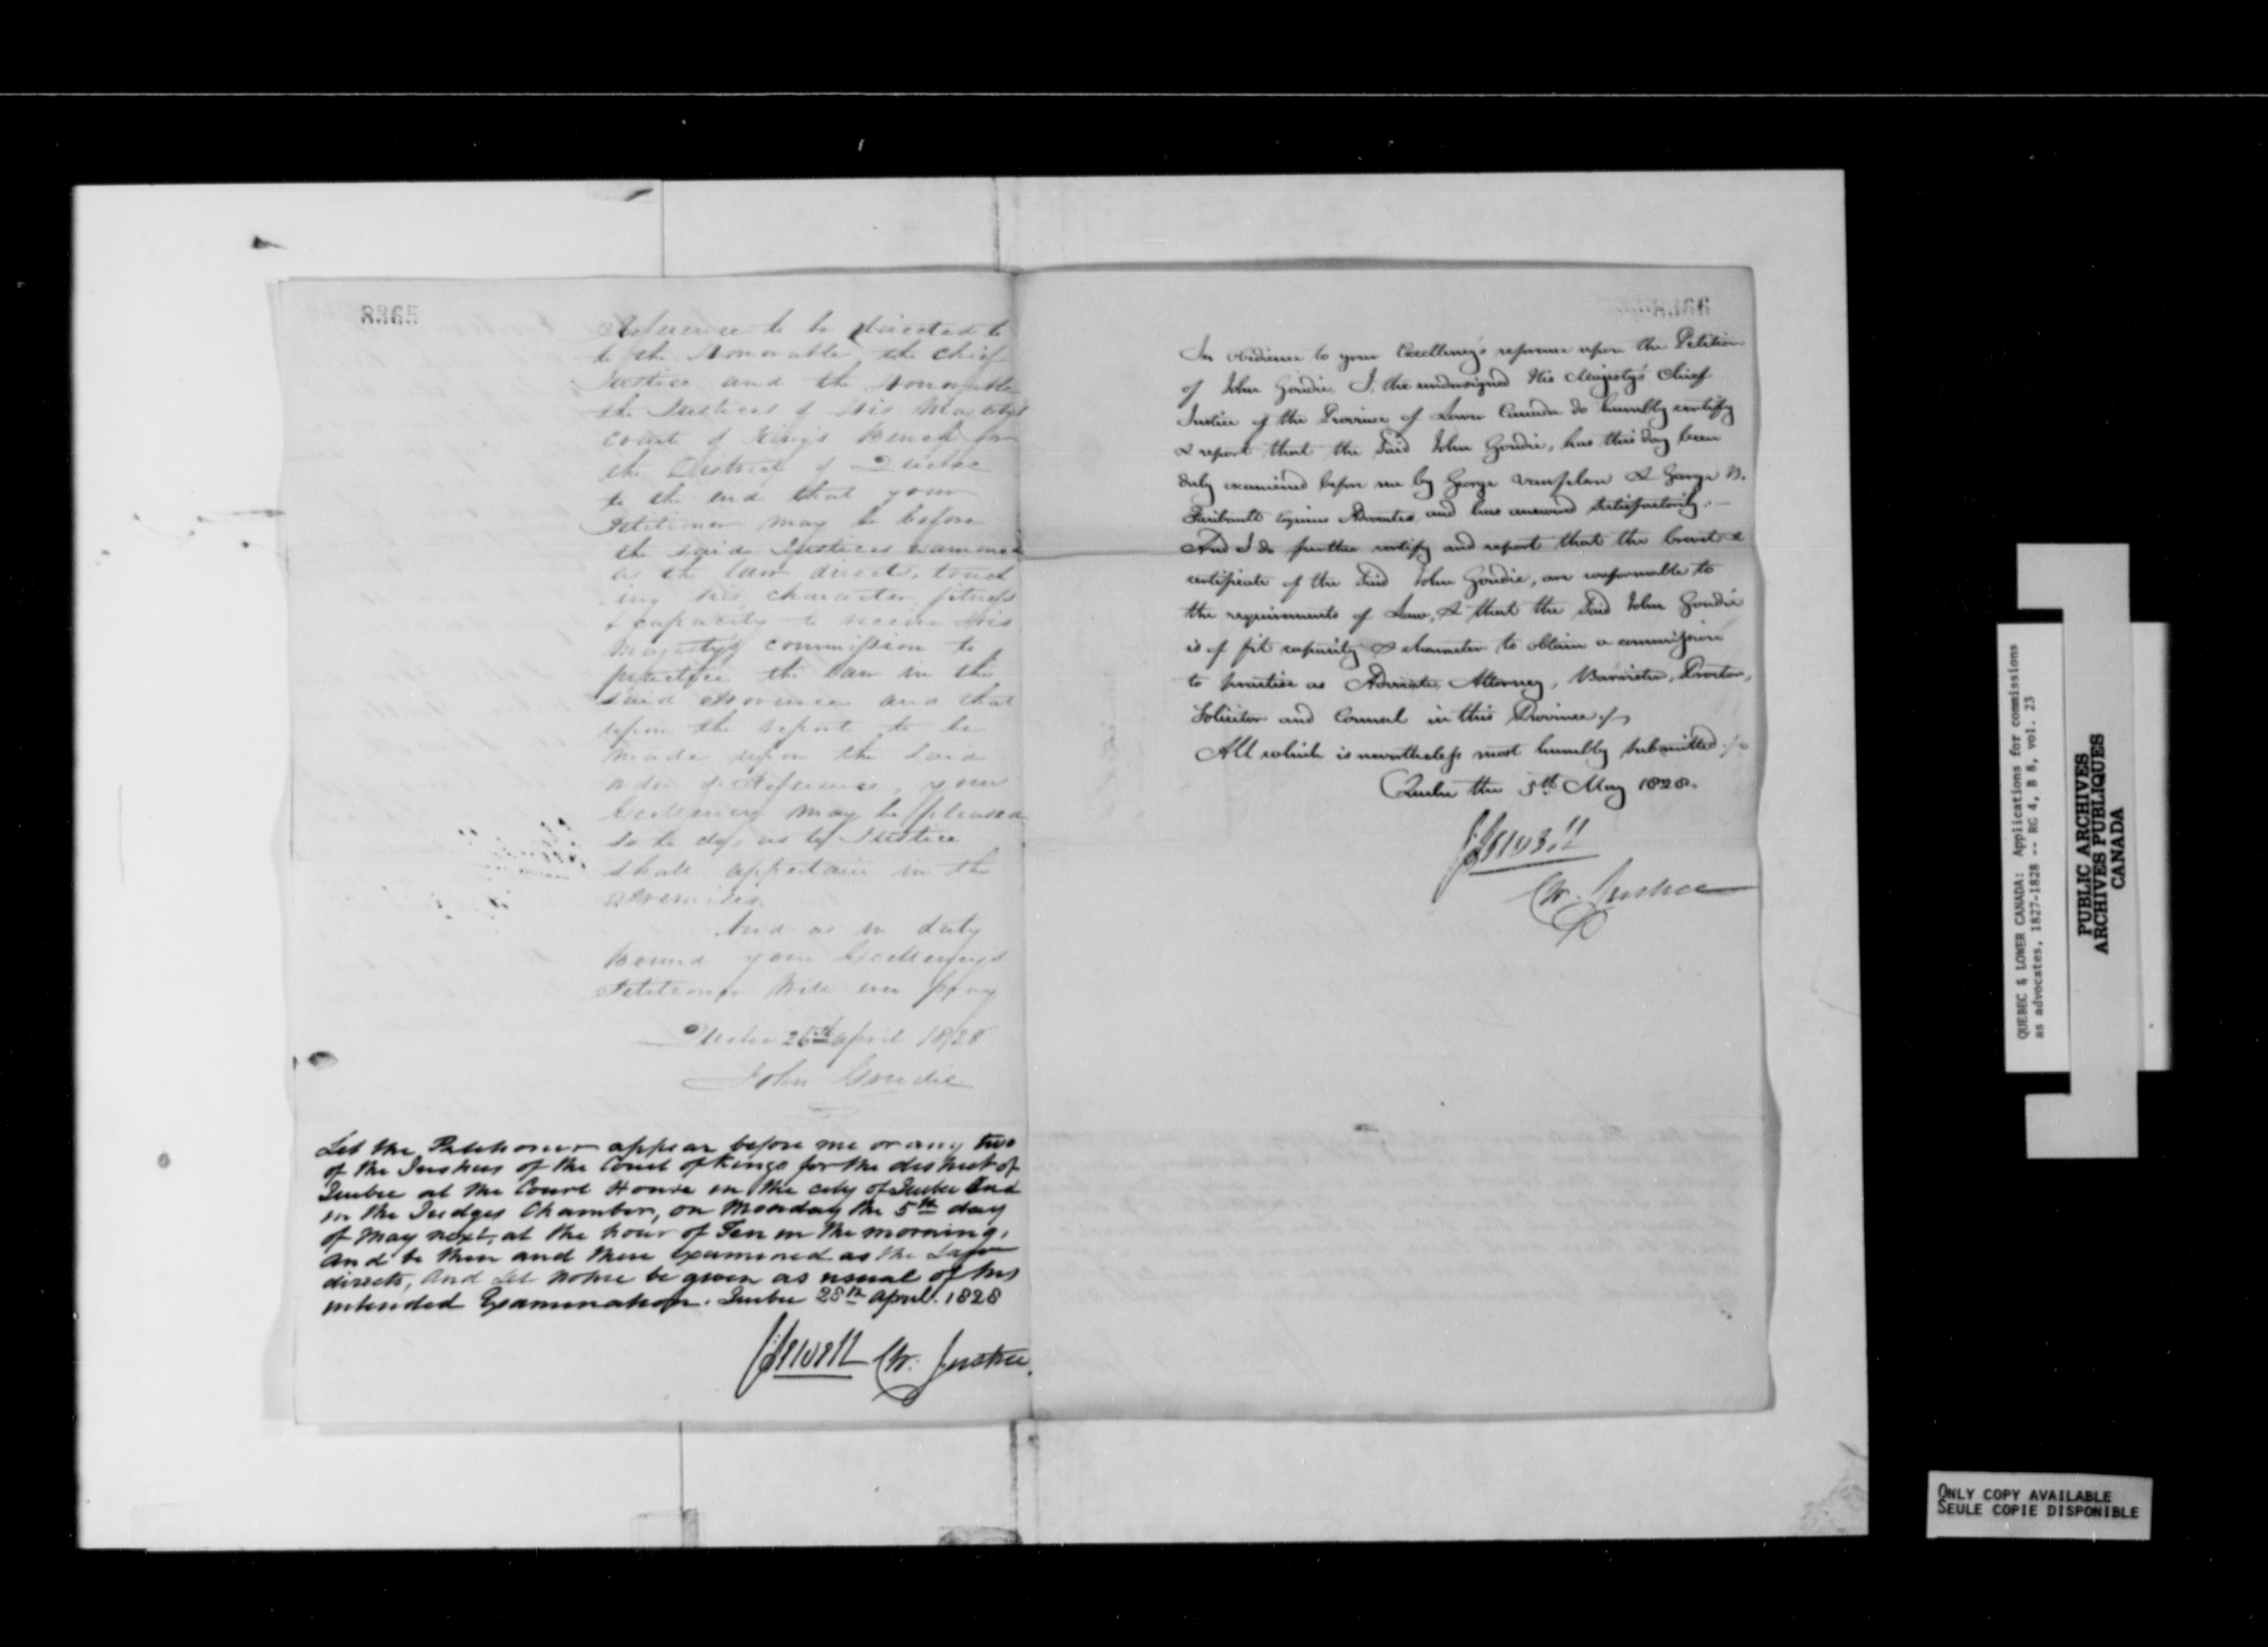 8365
Reference to be directed to
to the Honorable the Chief
Justice and the Honorable
the Justices of His Majesty's
Court of King's Bench for
the District of Quebec
to the end that your
Petitioner may be before
the said Justices examined
as the law directs, touch
ing his character, fitness
& capacity to receive His
Majesty's commission to
practice the law in the
said Province and that
upon the report to be
made upon the said
order of Reference, your
Excellency may be pleased
so to do, as to Justice
shall appertain in the
Premises.
And as in duty
bound your Excellency's
Petitioner will ever pray
Quebec 26th April 1828
John Goudie
Let the Petitioner appear before me or any two
of the Justices of the Court of Kings for the district of
Quebec at the Court House in the city of Quebec and
in the Judges Chamber, on Monday the 5th day
of May next, at the hour of Ten in the morning,
and be then and there examined as the Law
directs, and Let notice be given as usual of his
intended Examination. Quebec 28th April. 1828
J Sewell Ch. Justice.
8366
In obedience to your Excellency's reference upon the Petition
of John Goudie, I, the undersigned His Majesty's Chief
Justice of the Province of Lower Canada do humbly certify
& report that the Said John Goudie, has this day been
duly examined before me by George Vanfelson & George B.
Faribault Esquires Advocates, and has answered satisfactorily. —
And I do further certify and report that the brevet &
certificate of the Said John Goudie, are conformable to
the requirements of Law, & that the Said John Goudie
is of fit capacity & character to obtain a commission
to practise as Advocate, Attorney, Barrister, Proctor,
Solicitor and Counsel in this Province./.
All which is nevertheless most humbly submitted./.
Quebec the 5th May 1828.
J Sewell
Ch. Justice
QUEBEC & LOWER CANADA: Applications for commissions
as advocates, 1827-1828 -- RG 4, B 8, vol. 23
PUBLIC ARCHIVES
ARCHIVES PUBLIQUES
CANADA
ONLY COPY AVAILABLE
SEULE COPIE DISPONIBLE